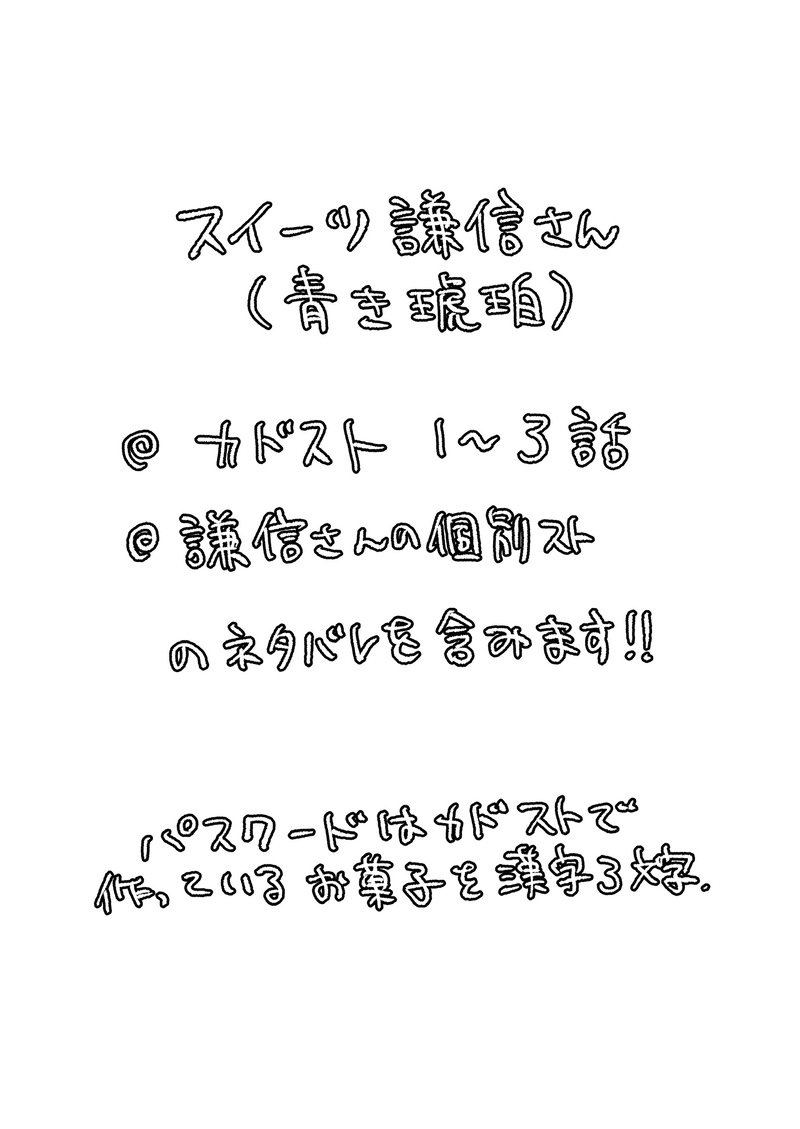 スイーツ謙信さん
(青き琥珀)
@ カドスト 1〜3話
@ 謙信さんの個別スト
のネタバレを含みます!!
パスワードはカドストで
作っているお菓子を漢字3文字.